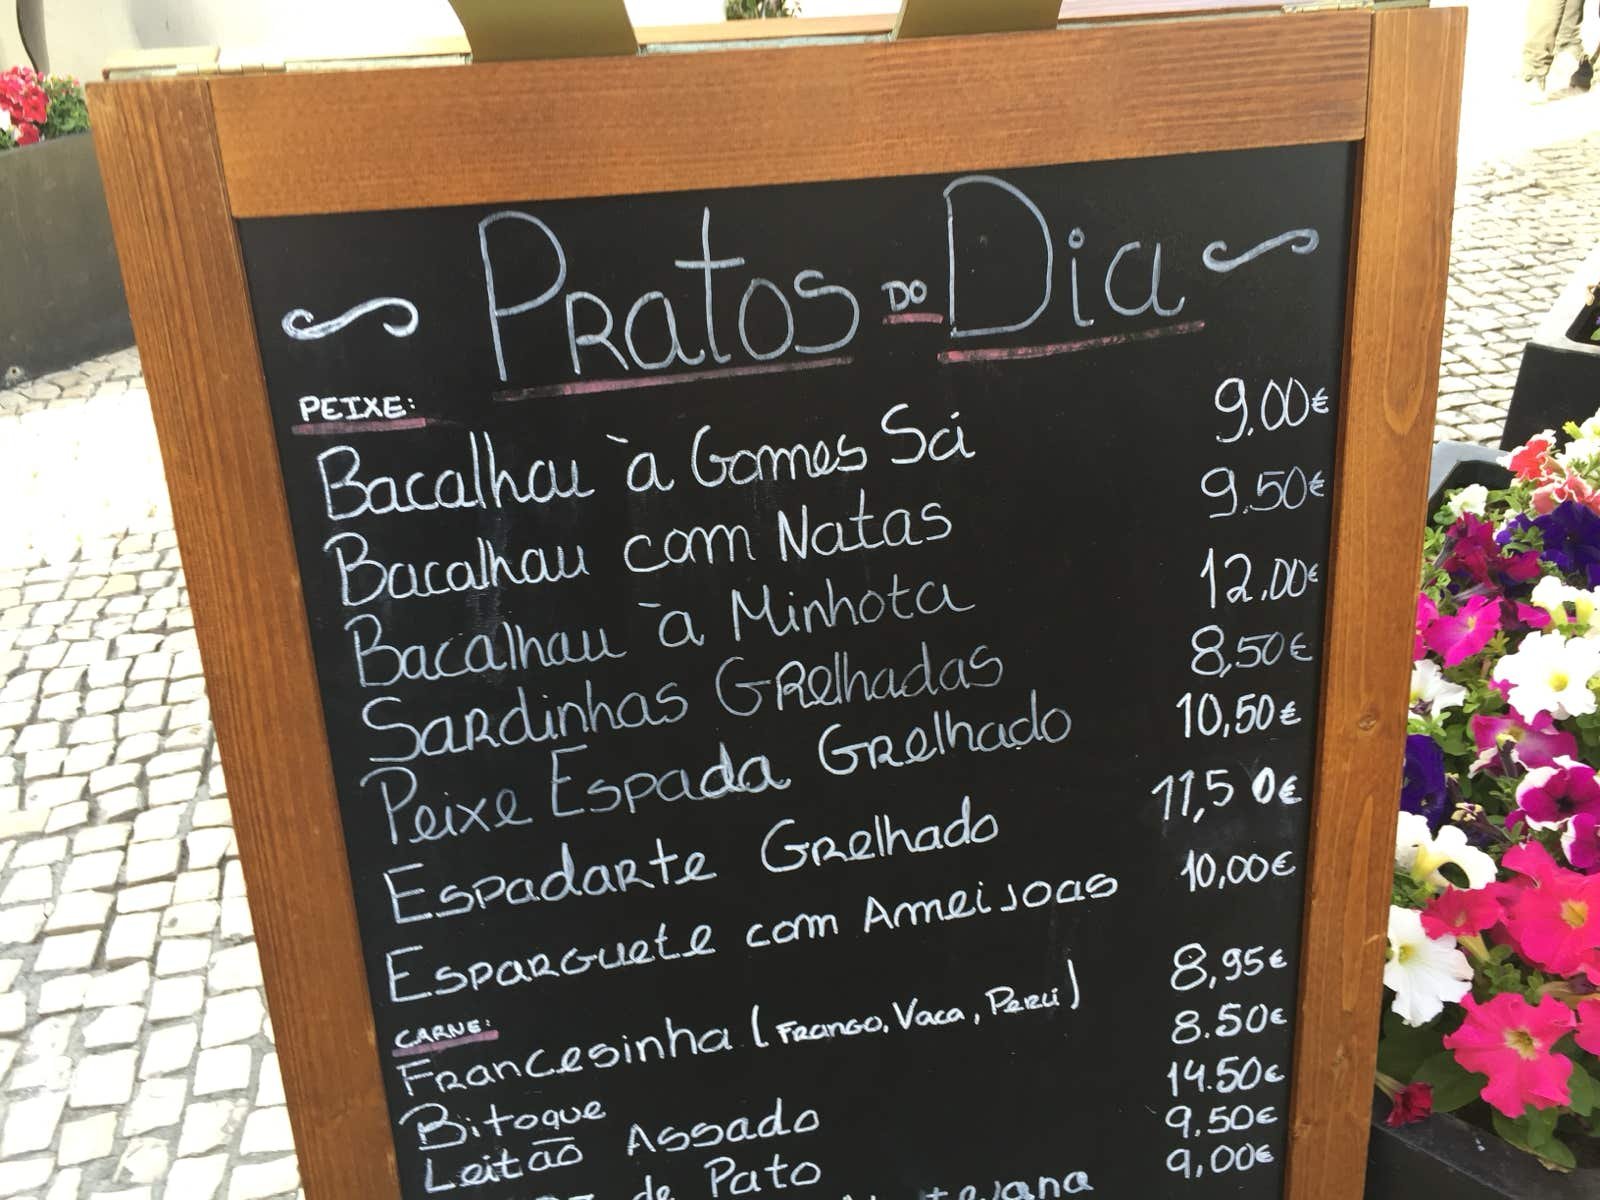 Pratos do Dia
PEIXE:
Bacalhau à Gomes Sá 9.00€
Bacalhau com Natas 9.50€
Bacalhau à Minhota 12.00€
Sardinhas Grelhadas 8,50€
Peixe Espada Grelhado 10,50€
Espadarte Grelhado 11,50€
Esparguete com Ameijoas 10,00€
CARNE:
Francesinha (Frango, Vaca, Peru) 8,95€
Bitoque 8.50€
Leitão Assado 14.50€
de Pato 9.50€
9,00€